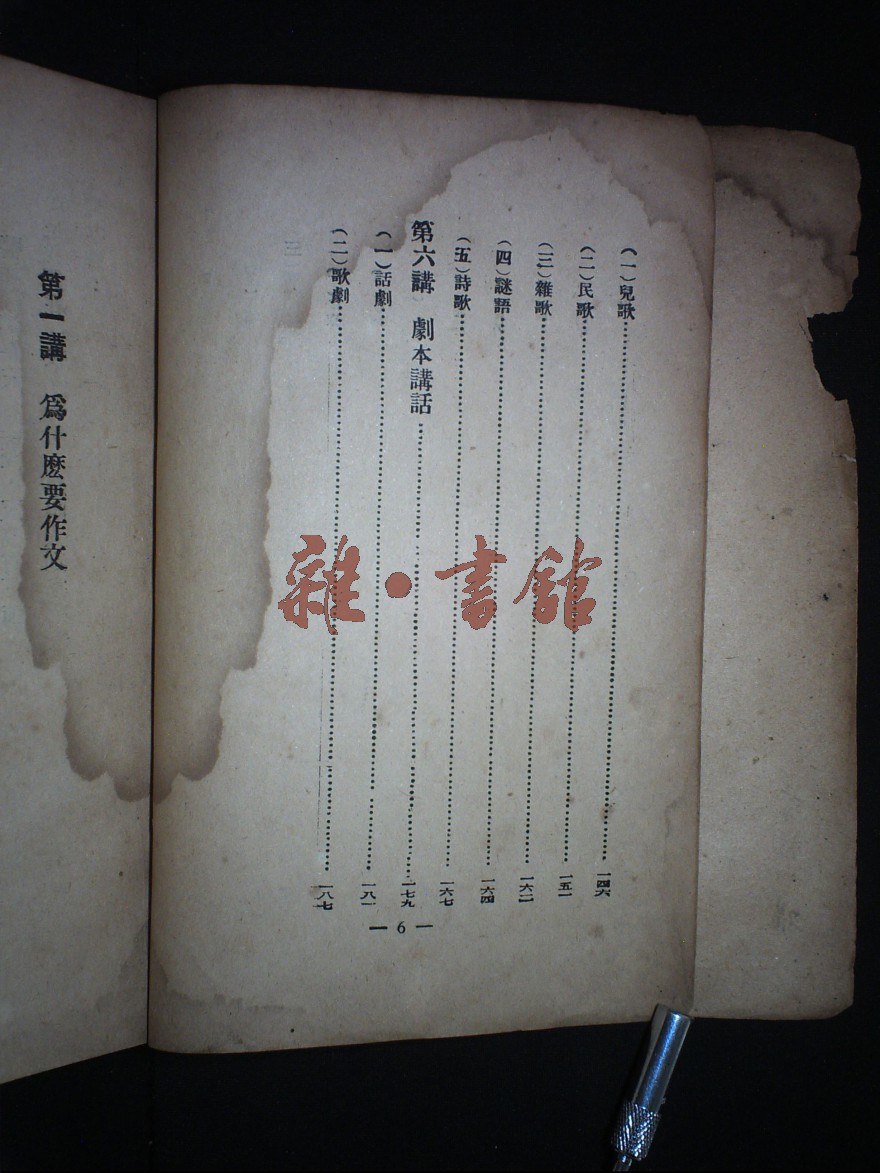 (一)兒歌……一四六
(二)民歌……一五一
(三)雜歌……一六二
(四)謎語……一六四
(五)詩歌……一六七
第六講 劇本講話……一七九
(一)話劇……一八一
(二)歌劇……一八七
— 6 —
第一講 爲什麽要作文
雜·書館